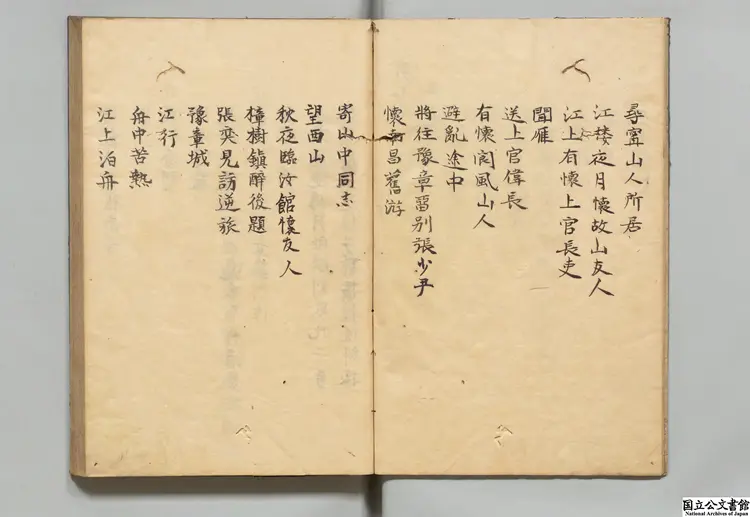 尋寗山人所居
江楼夜月懷故山友人
江上有懷上官長吏
聞雁
送上官偉長
有懷閬風山人
避亂途中
將往豫章畱別張少尹
懷南昌舊游
寄山中同志
望西山
秋夜臨汝館懷友人
樟樹鎮醉後題
張奕見訪逆旅
豫章城
江行
舟中苦熱
江上泊舟
国立公文書館
National Archives of Japan